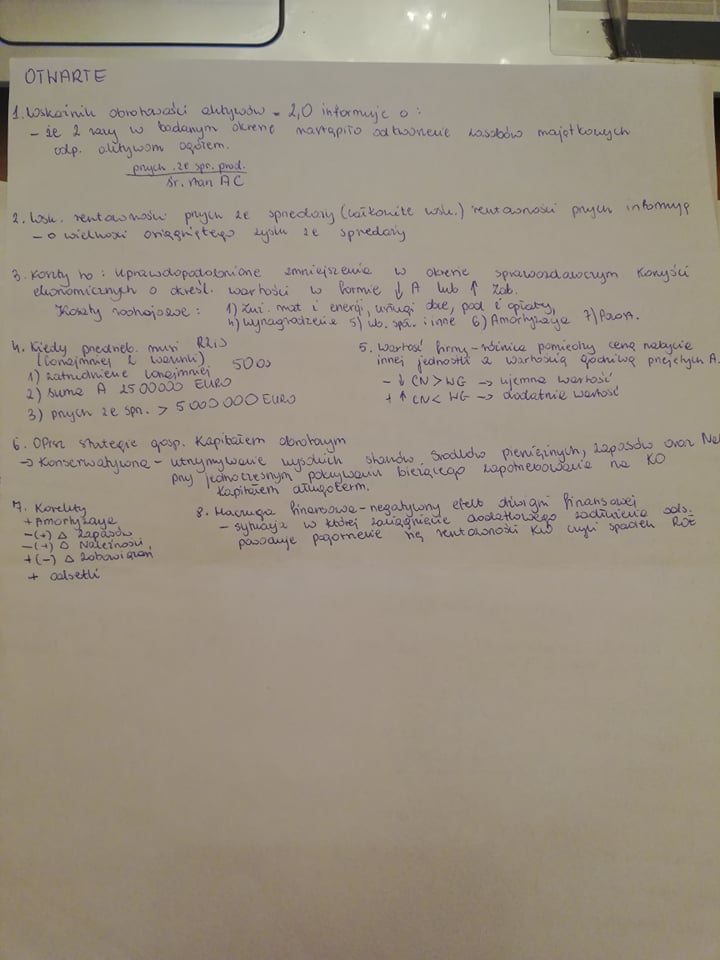 OTWARTE
1. Wskaźnik obrotowości aktywów = 2,0 informuje o :
- że 2 razy w badanym okresie nastąpiło odtworzenie zasobów majątkowych
odp. aktywom ogółem.
przych. ze spr. prod.
śr. stan AC
2. Wsk. rentowności przych ze sprzedaży (całkowite wsk.) rentowności przych informuje
- o wielkości osiągniętego zysku ze sprzedaży
3. Koszty to : Uprawdopodobnione zmniejszenia w okresie sprawozdawczym korzyści
ekonomicznych o określ. wartości w formie ↓ A lub ↑ Zob.
Koszty rodzajowe : 1) Zuż. mat i energii, usługi obce, pod i opłaty,
4) wynagrodzenie 5) ub. społ. i inne 6) Amortyzacja 7) Pozost.
4. Kiedy przedsięb. musi
(conajmniej 2 warunki)
1) zatrudnienie conajmniej 50 os
2) suma A 2500000 EURO
3) przych ze spr. > 5 000 000 EURO
5. Wartość firmy - różnica pomiędzy ceną nabycia
innej jednostki a wartością godziwą przejętych A.
- ↓ CN > WG → ujemna wartość
+ ↑ CN < WG → dodatnia wartość
6. Opisz strategie gosp. Kapitałem obrotowym
→ Konserwatywna - utrzymywanie wysokich stanów środków pieniężnych, zapasów oraz
przy jednoczesnym pokrywaniu bieżącego zapotrzebowania na KO
kapitałem długoterm.
7. Korekty
+ Amortyzacja
-(+) Δ Zapasów
-(+) Δ Należności
+(-) Δ zobowiązań
+ odsetki
8. Maczuga finansowa - negatywny efekt dźwigni finansowej
- sytuacja w której zaciągnięcie dodatkowego zadłużenia ods.
powoduje pogorszenie się rentowności KW czyli spadek ROE